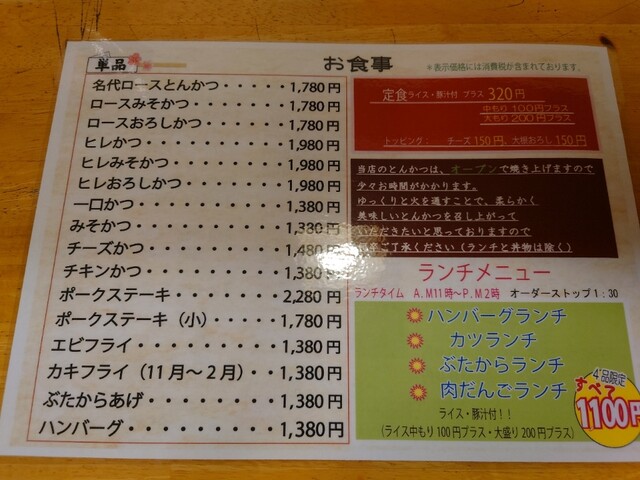 お食事
＊表示価格には消費税が含まれております。
単品
名代ロースとんかつ・・・・・1,780円
ロースみそかつ・・・・・・・1,780円
ロースおろしかつ・・・・・・1,780円
ヒレかつ・・・・・・・・・・1,980円
ヒレみそかつ・・・・・・・・1,980円
ヒレおろしかつ・・・・・・・1,980円
一口かつ・・・・・・・・・・1,380円
みそかつ・・・・・・・・・・1,380円
チーズかつ・・・・・・・・・1,480円
チキンかつ・・・・・・・・・1,380円
ポークステーキ・・・・・・・2,280円
ポークステーキ（小）・・・・1,780円
エビフライ・・・・・・・・・1,380円
カキフライ（11月～2月）・・1,380円
ぶたからあげ・・・・・・・・1,380円
ハンバーグ・・・・・・・・・1,380円
定食 ライス・豚汁付 プラス 320円
中もり 100円プラス
大もり 200円プラス
トッピング： チーズ 150円、大根おろし 150円
当店のとんかつは、オーブンで焼き上げますので
少々お時間がかかります。
ゆっくりと火を通すことで、柔らかく
美味しいとんかつを召し上がって
いただきたいと思っておりますので
ご了承ください（ランチと丼物は除く）
ランチメニュー
ランチタイム A.M11時～P.M2時 オーダーストップ1：30
ハンバーグランチ
カツランチ
ぶたからランチ
肉だんごランチ
4品限定
すべて
1100円
ライス・豚汁付！！
（ライス中もり100円プラス・大盛り200円プラス）